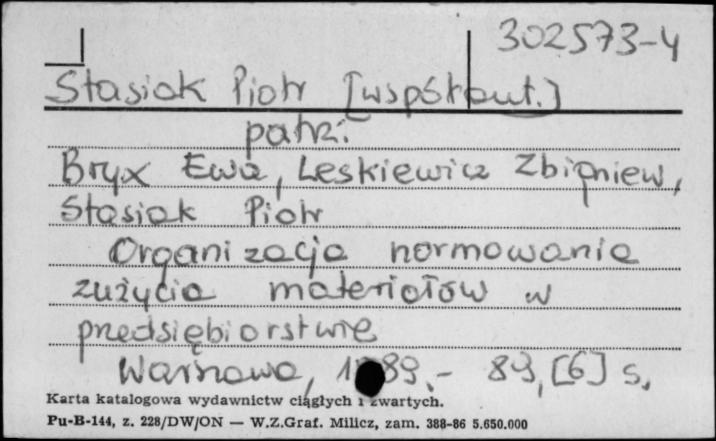 302573-4
Stasiak Piotr [współaut.]
patrz:
Bryx Ewa, Leskiewicz Zbigniew,
Stasiak Piotr
Organizacja normowania
zużycia materiałów w
przedsiębiorstwie
Warszawa, 1989.- 89, [6] s.
Karta katalogowa wydawnictw ciągłych i zwartych.
Pu-B-144, z. 228/DW/ON — W.Z.Graf. Milicz, zam. 388-86 5.650.000